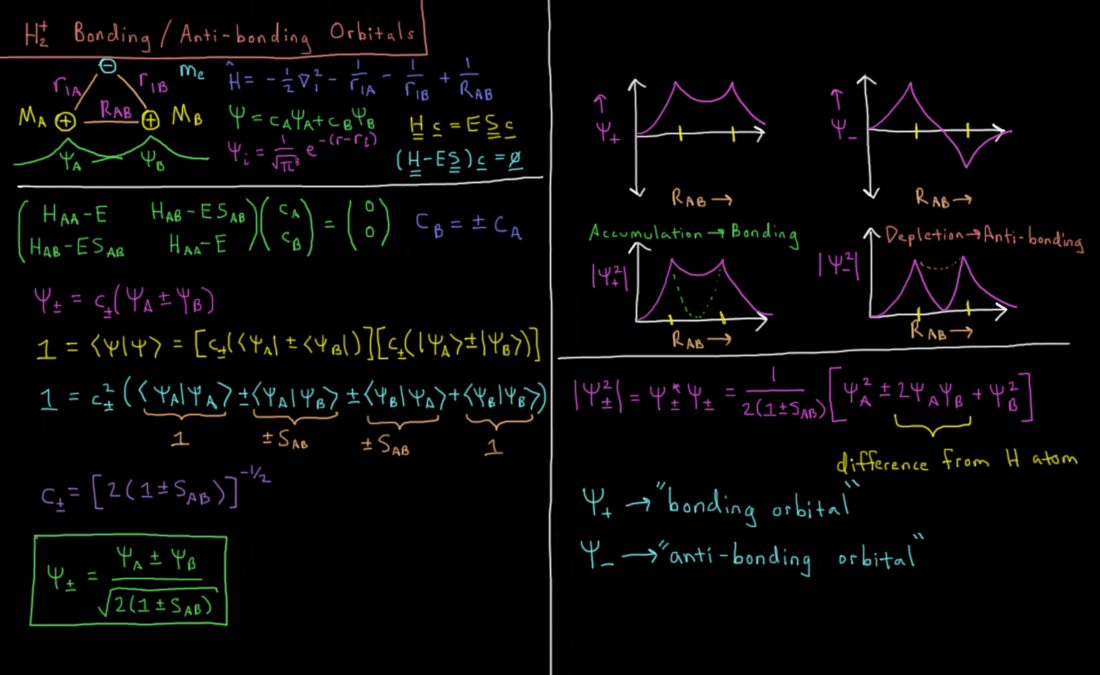 H₂⁺ Bonding / Anti-bonding Orbitals
⊖ mₑ
r₁A r₁B
M_A ⊕ R_AB ⊕ M_B
Ψ_A Ψ_B
Ĥ = -½∇₁² - 1/r₁A - 1/r₁B + 1/R_AB
Ψ = c_AΨ_A + c_BΨ_B
H c = E S c
Ψᵢ = 1/√π³ e^-(r-rᵢ)
(H-ES)c = ∅
(H_AA-E H_AB-ES_AB) (c_A) = (0)
(H_AB-ES_AB H_AA-E) (c_B) (0)
C_B = ± C_A
Ψ± = c±(Ψ_A ± Ψ_B)
1 = ⟨Ψ|Ψ⟩ = [c±(⟨Ψ_A| ± ⟨Ψ_B|)][c±(|Ψ_A⟩ ± |Ψ_B⟩)]
1 = c±² (⟨Ψ_A|Ψ_A⟩ ± ⟨Ψ_A|Ψ_B⟩ ± ⟨Ψ_B|Ψ_A⟩ + ⟨Ψ_B|Ψ_B⟩)
1 ±S_AB ±S_AB 1
c± = [2(1±S_AB)]^-1/2
Ψ± = (Ψ_A ± Ψ_B)/√(2(1±S_AB))
↑ Ψ₊
R_AB →
↑ Ψ₋
R_AB →
Accumulation → Bonding
|Ψ₊²|
R_AB →
Depletion → Anti-bonding
|Ψ₋²|
R_AB →
|Ψ±²| = Ψ±* Ψ± = 1/(2(1±S_AB)) [Ψ_A² ± 2Ψ_AΨ_B + Ψ_B²]
difference from H atom
Ψ₊ → "bonding orbital"
Ψ₋ → "anti-bonding orbital"